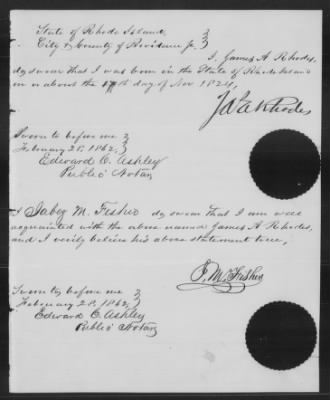 State of Rhode Island
City & County of Providence Sc
I, James A Rhodes,
do swear that I was born in the State of Rhode Island
on or about the day of Nov 1824,
Jas A Rhodes
Sworn to before me
February 28, 1862,
Edward C. Ashley
Public Notary
I Jabez M. Fisher do swear that I am well
acquainted with the above named James A Rhodes,
and I verily believe his above statement true,
J. M. Fisher
Sworn to before me
February 28, 1862,
Edward C. Ashley
Public Notary